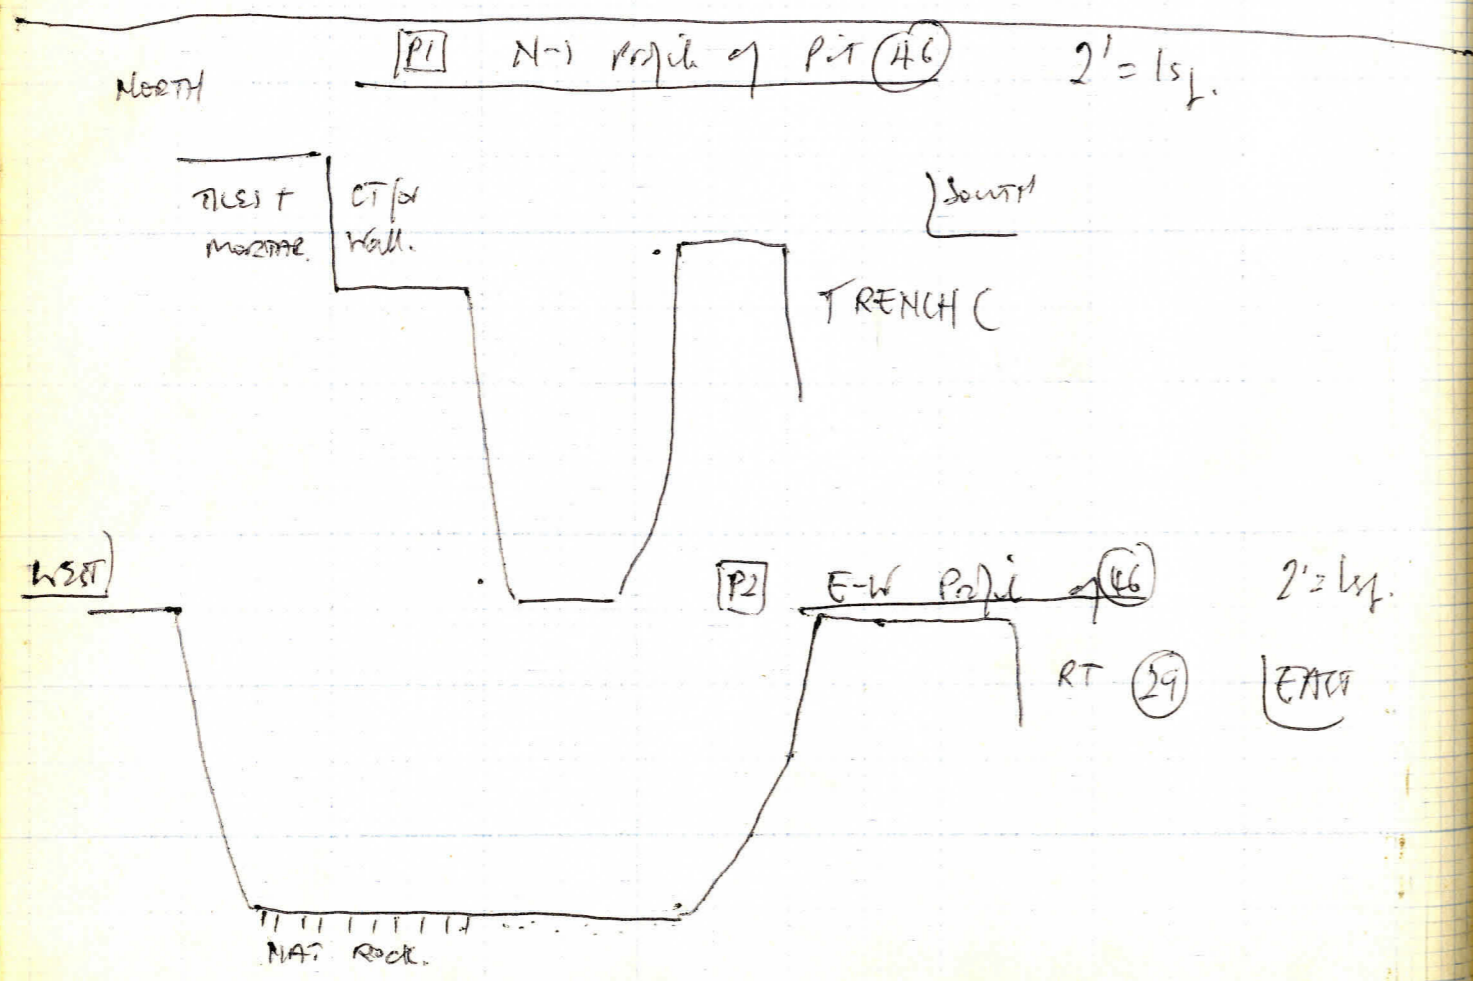 P1 N-S Profile of Pit 46 2' = 1sq.
NORTH
TILES +
MORTAR.
CT for
Wall.
SOUTH
TRENCH C
WEST
P2 E-W Profile of 46 2' = 1sq.
RT 29
EAST
NAT ROCK.